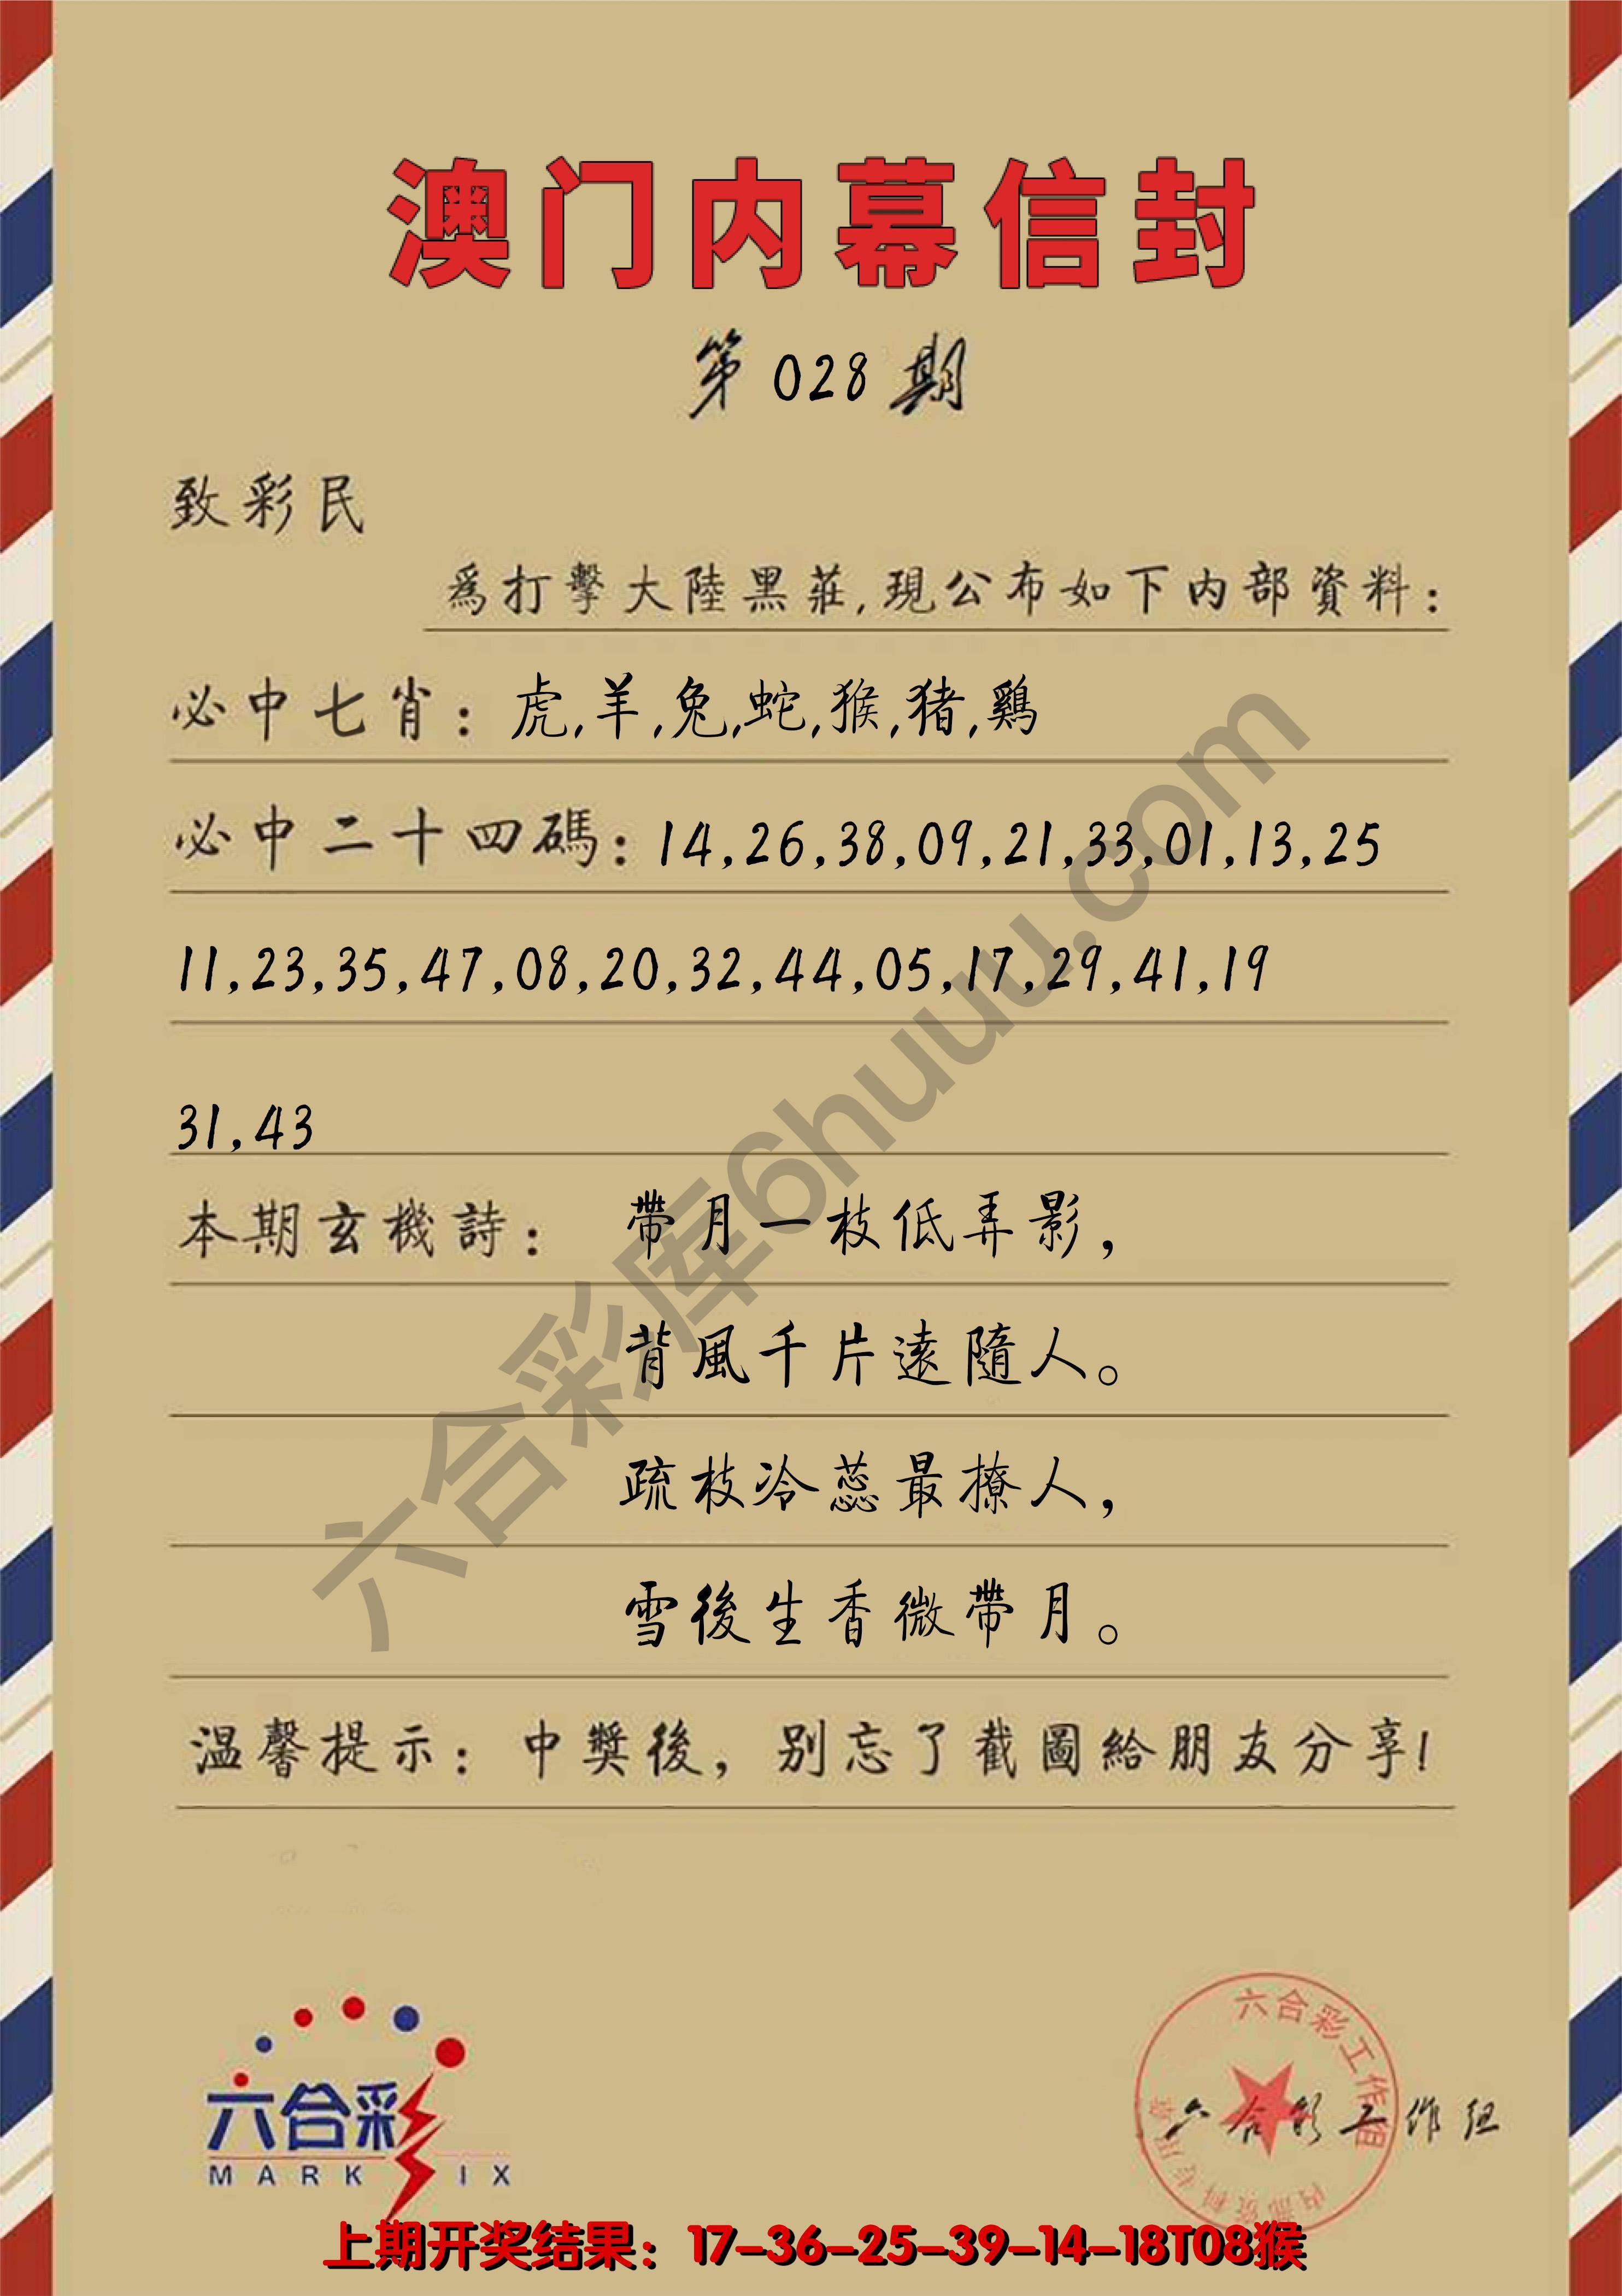 澳门内幕信封
第028期
致彩民
為打擊大陸黑莊,現公布如下內部資料:
必中七肖:虎,羊,兔,蛇,猴,猪,鷄
必中二十四碼:14,26,38,09,21,33,01,13,25
11,23,35,47,08,20,32,44,05,17,29,41,19
31,43
本期玄機詩: 帶月一枝低弄影,
背風千片遠隨人。
疏枝冷蕊最撩人,
雪後生香微帶月。
温馨提示:中獎後,别忘了截圖給朋友分享!
六合彩库6huuu.com
六合彩
MARK IX
六合彩工作组
六合彩工作组
上期开奖结果:17-36-25-39-14-18T08猴